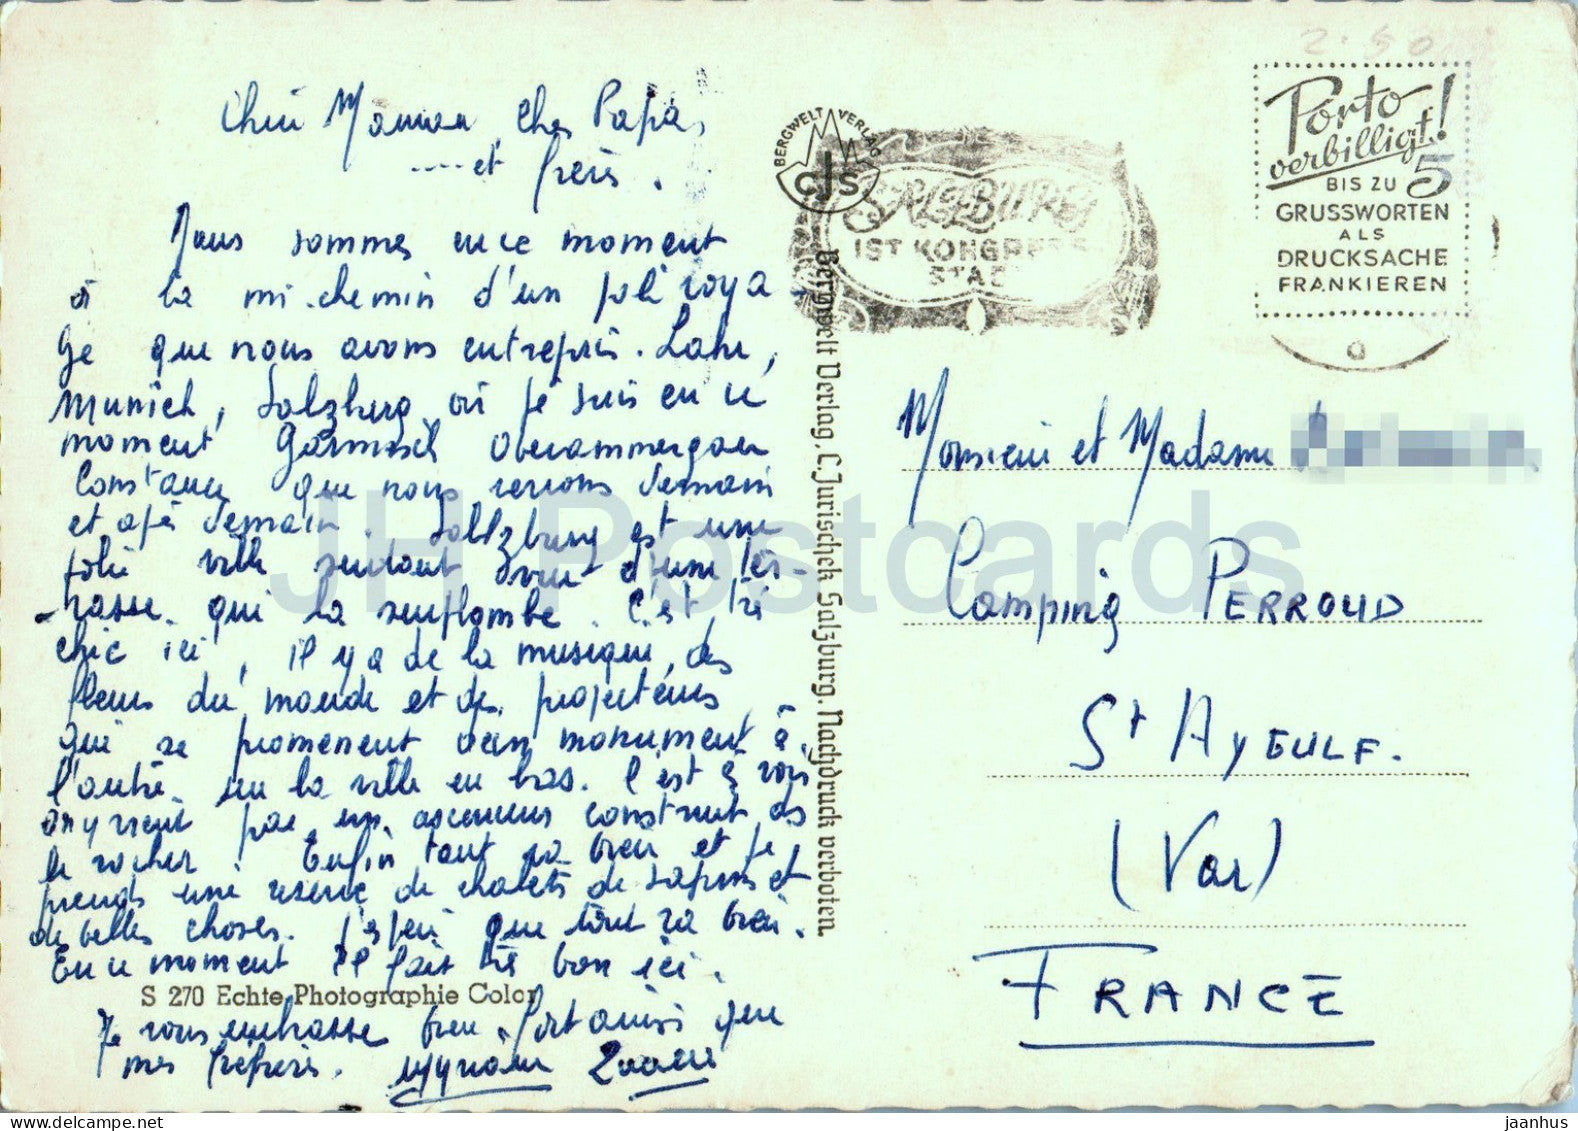 Maman, Papa,
.... et frères.
Nous sommes en ce moment
à la mi-chemin d'un joli voya
ge que nous avons entrepris. Lahr,
Munich, Salzberg où je suis en ce
moment Garmisch Oberammergau
Constance que nous verrons demain
et après demain. Saltzburg est une
jolie ville d'une ter-
-rasse qui la surplombe. C'est très
chic ici, il y a de la musique, des
fleurs du monde et des projecteurs
qui se promenent d'un monument à
l'autre sur la ville en bas. C'est à vous
on y vient par un ascenseur construit ds
le rocher ! Enfin tout va bien et je
prends une réserve de chalets de sapins et
de belles choses. J'espère que tout va bien.
En ce moment il fait très bon ici.
S 270 Echte Photographie Color
Je vous embrasse bien fort ainsi que
mes frères.
BERGWELT VERLAG
CJS
SALZBURG
IST KONGRESS
STADT
Bergwelt Verlag, C. Jurischek Salzburg. Nachdruck verboten.
2.50
Porto
verbilligt!
BIS ZU 5
GRUSSWORTEN
ALS
DRUCKSACHE
FRANKIEREN
Monsieur et Madame
Camping PERROUD
St AYEULF.
(Var)
FRANCE
JH Postcards
jaanhus